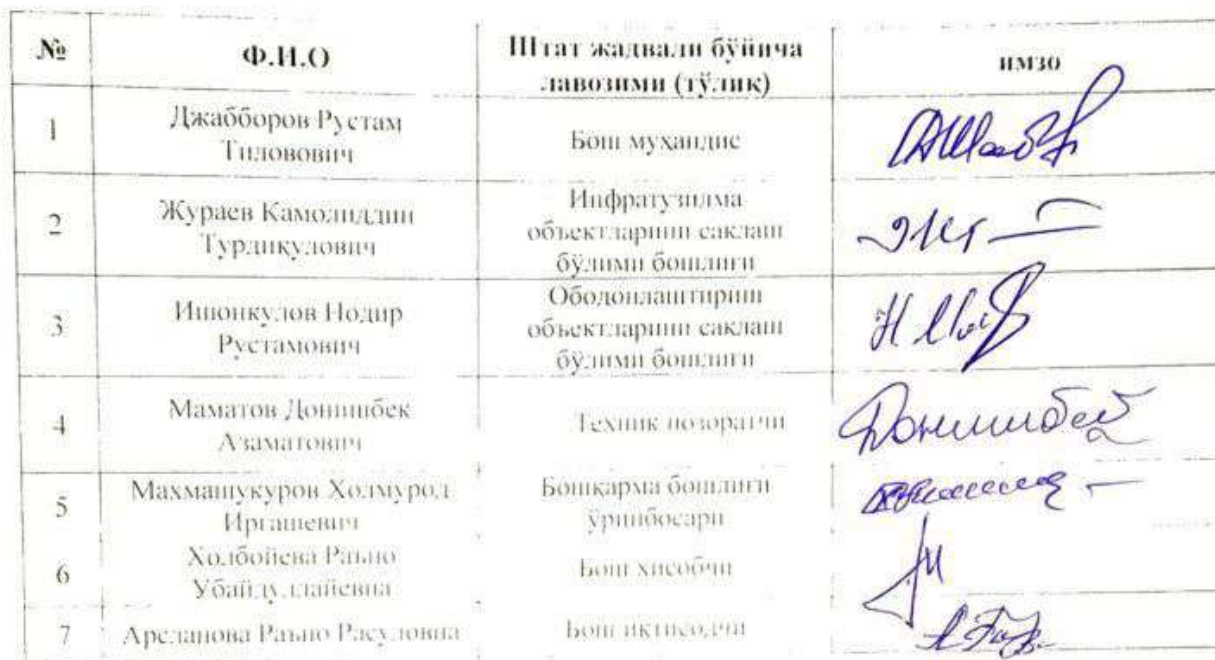 №
Ф.И.О
Штат жадвали бўйича
лавозими (тўлиқ)
имзо
1
Джабборов Рустам
Тиловович
Бош муҳандис
2
Жураев Камолиддин
Турдиқулович
Инфратузилма
объектларини сақлаш
бўлими бошлиғи
3
Ишонкулов Нодир
Рустамович
Ободонлаштириш
объектларини сақлаш
бўлими бошлиғи
4
Маматов Донишбек
Азаматович
Техник нозоратчи
Донишбек
5
Махмашукуров Холмурод
Иргашевич
Бошқарма бошлиғи
ўринбосари
6
Холбойева Раъно
Убайдуллайевна
Бош хисобчи
7
Арсланова Раъно Расуловна
Бош иқтисодчи